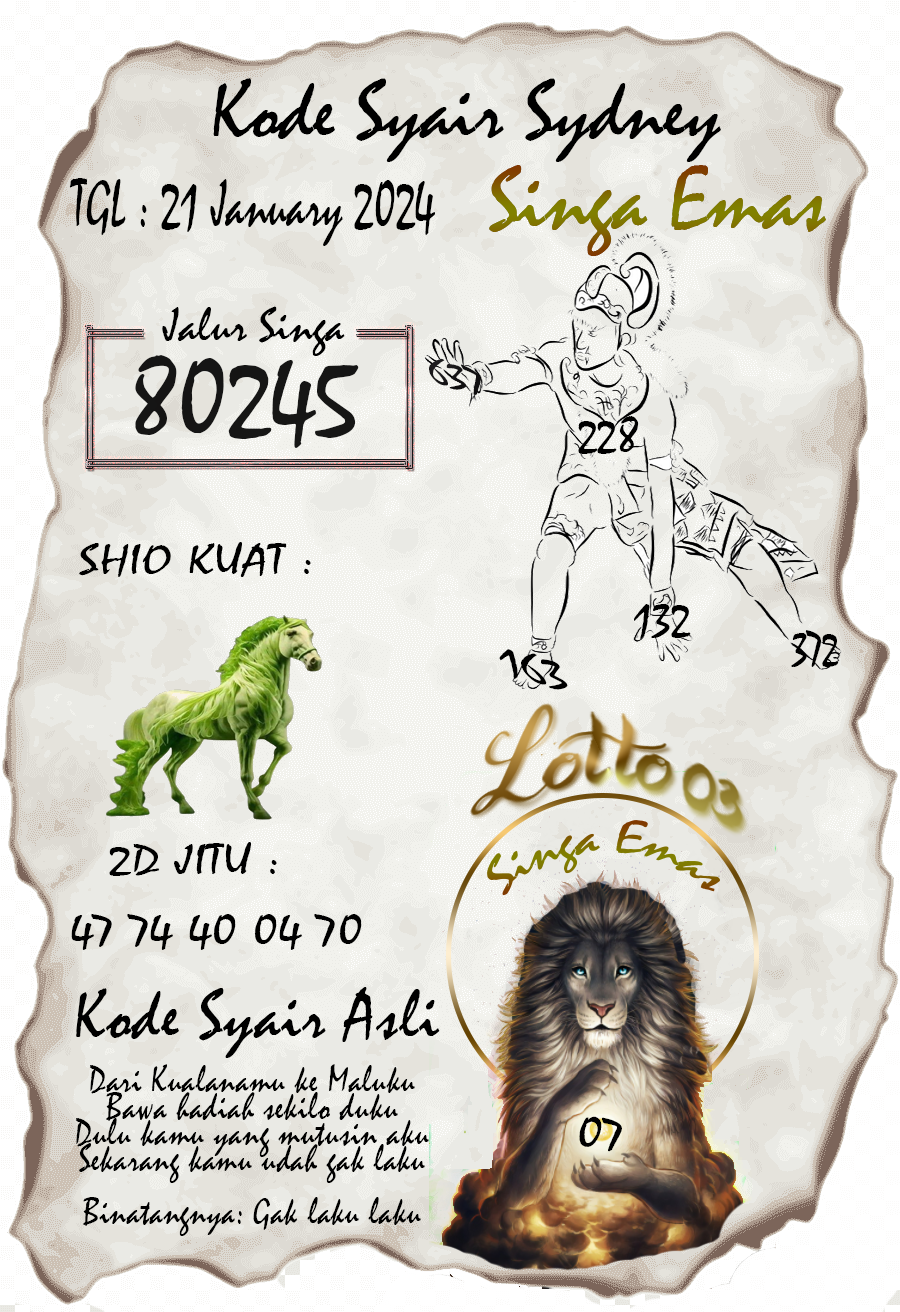 Kode Syair Sydney
TGL : 21 January 2024
Singa Emas
Jalur Singa
80245
637
228
132
163
372
SHIO KUAT :
Lotto 03
Singa Emas
2D JITU :
47 74 40 04 70
07
Kode Syair Asli
Dari Kualanamu ke Maluku
Bawa hadiah sekilo duku
Dulu kamu yang mutusin aku
Sekarang kamu udah gak laku
Binatangnya: Gak laku laku